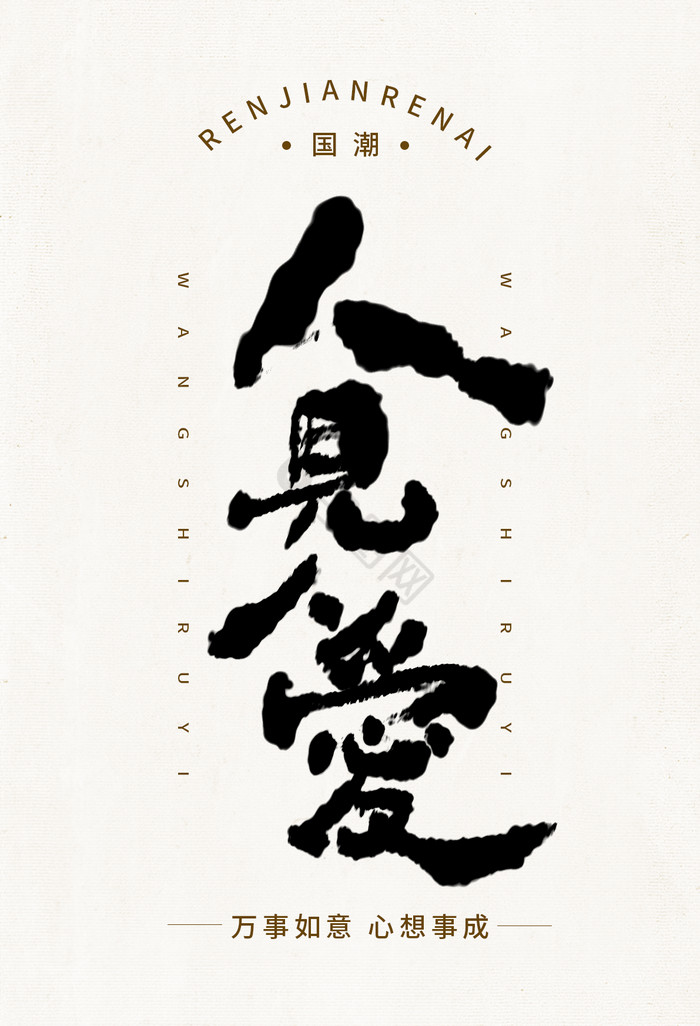 RENJIANRENAI
• 国潮 •
人見人愛
WANGSHIRUYI
WA GSHIRUYI
万事如意 心想事成